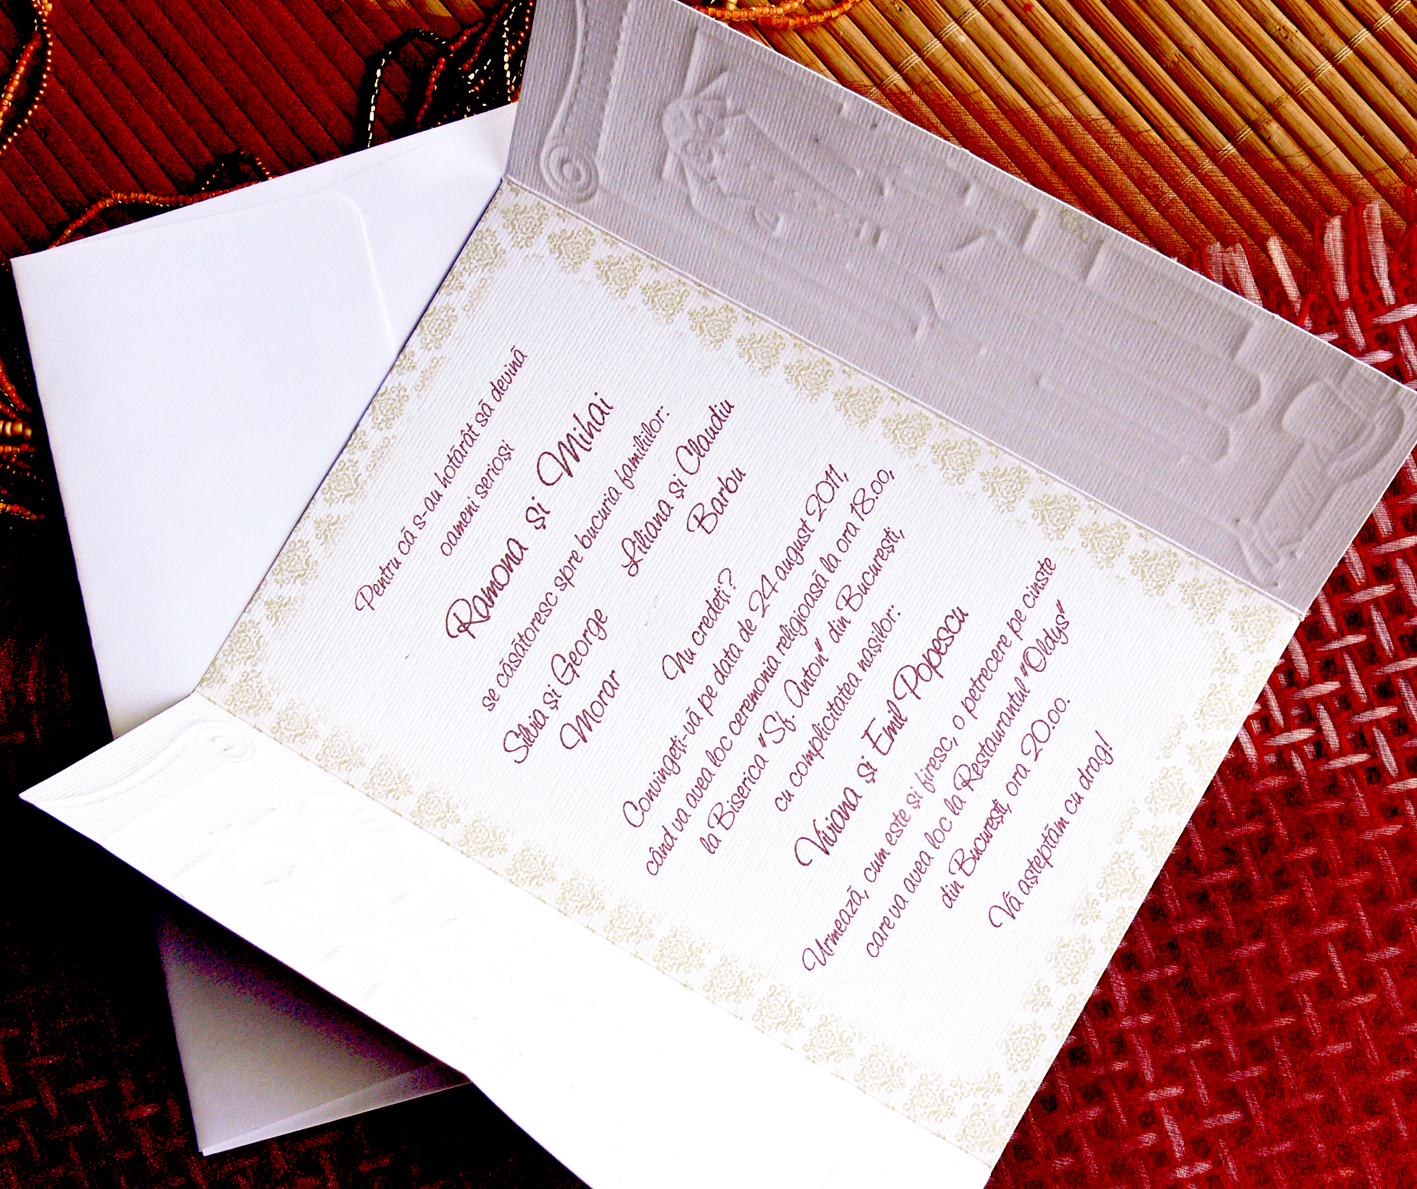 Pentru că s-au hotărât să devină
oameni serioși
Ramona și Mihai
se căsătoresc spre bucuria familiilor:
Silvia și George
Morar
Liliana și Claudiu
Barbu
Nu credeți?
Convingeți-vă pe data de 24 august 2011,
când va avea loc ceremonia religioasă la ora 18.00,
la Biserica "Sf. Anton" din București,
cu complicitatea nașilor:
Viviana și Emil Popescu
Urmează, cum este și firesc, o petrecere pe cinste
care va avea loc la Restaurantul "Oldys"
din București, ora 20.00.
Vă așteptăm cu drag!